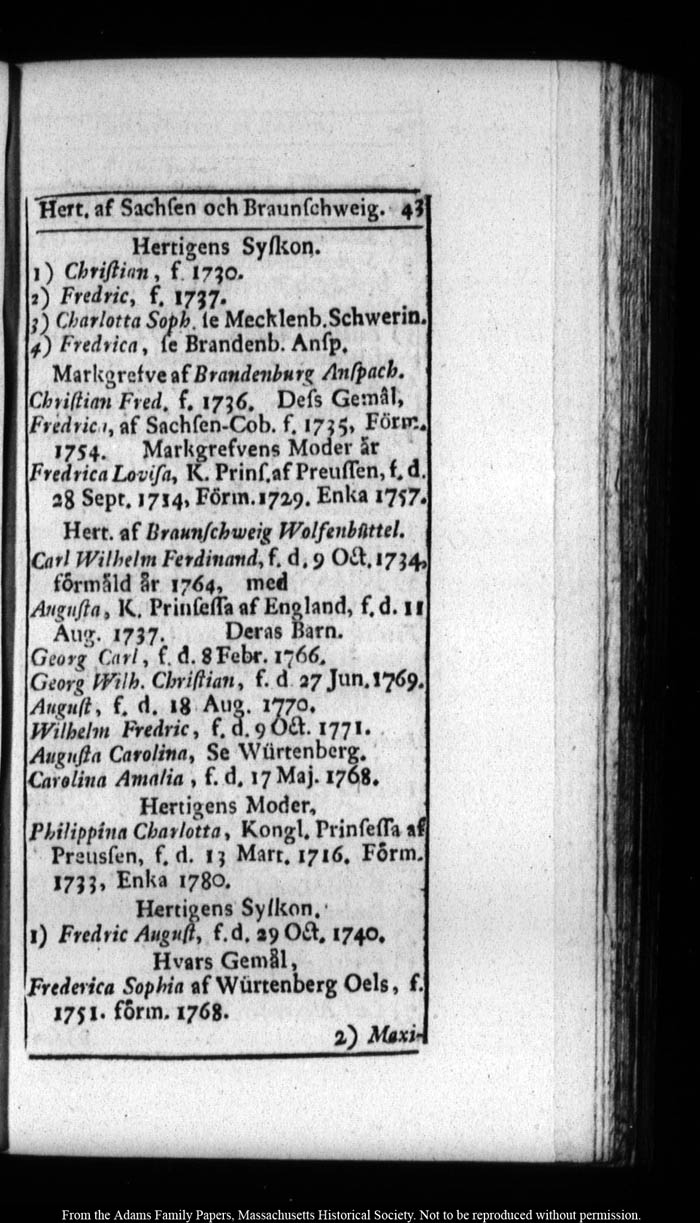 Hert. af Sachſen och Braunſchweig. 43
Hertigens Syſkon.
1) Chriſtian, f. 1730.
2) Fredric, f. 1737.
3) Charlotta Soph. ſe Mecklenb.Schwerin.
4) Fredrica, ſe Brandenb. Anſp.
Markgrefve af Brandenburg Anſpach.
Chriſtian Fred. f. 1736. Deſs Gemål,
Fredrica, af Sachſen-Cob. f. 1735, Förm.
1754. Markgrefvens Moder är
Fredrica Loviſa, K. Prinſ.af Preuſſen, f. d.
28 Sept. 1714, Förm.1729. Enka 1757.
Hert. af Braunſchweig Wolfenbüttel.
Carl Wilhelm Ferdinand, f. d. 9 Oct. 1734,
förmäld år 1764, med
Auguſta, K. Prinſeſſa af England, f. d. 11
Aug. 1737. Deras Barn.
Georg Carl, f. d. 8 Febr. 1766.
Georg Wilh. Chriſtian, f. d 27 Jun. 1769.
Auguſt, f. d. 18 Aug. 1770.
Wilhelm Fredric, f. d. 9 Oct. 1771.
Auguſta Carolina, Se Würtenberg.
Carolina Amalia, f. d. 17 Maj. 1768.
Hertigens Moder,
Philippina Charlotta, Kongl. Prinſeſſa af
Preusſen, f. d. 13 Mart. 1716. Förm.
1733, Enka 1780.
Hertigens Syſkon.
1) Fredric Auguſt, f. d. 29 Oct. 1740.
Hvars Gemål,
Frederica Sophia af Würtenberg Oels, f.
1751. förm. 1768.
2) Maxi-
From the Adams Family Papers, Massachusetts Historical Society. Not to be reproduced without permission.